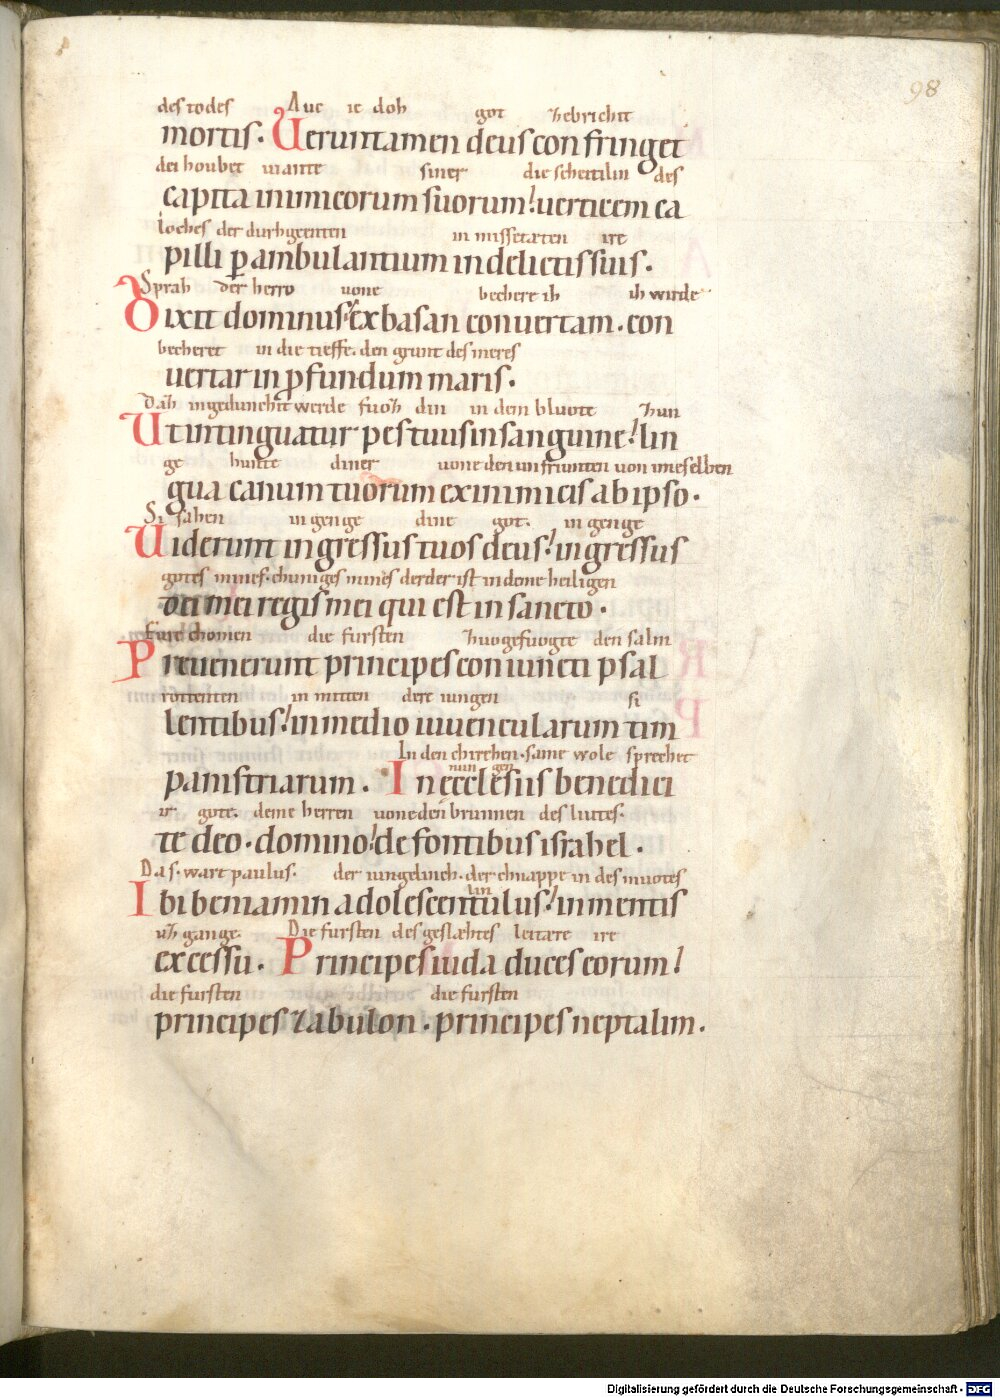 98
des todes Aue ie doh got zebrichit
mortis. Ueruntamen deus confringet
dei houbet uiante siner die scheitilun des
capita inimicorum suorum! uerticem ca
loches der durhgeenten in missetaten ire
pilli p̲ambulantium in delictis suis.
Sprah der herro uone bechere ih ih wirde
Dixit dominus ex basan conuertam. con
becheret in die tieffe. den grunt des meres
uertar in pfundum maris.
Daz ingedunchit werde fuoz din in dem bluote zun
Ut intinguatur pes tuus in sanguine! lin
ge hunte diner uone den unfriunten uon imeselben
gua canum tuorum ex inimicis ab ipso.
Si sahen in genge dine got. in genge
Uiderunt ingressus tuos deus! ingressus
gotes mines. chuniges mines der der ist in deme heiligen
dei mei regis mei qui est in sancto.
Fure chomen die fursten zuogefuogte den salm
Preuenerunt principes coniuncti psal
rottenten in mitten dere iungen si
lentibus! in medio iuuencularum tim
In den chirchen. same wole sprechet
nun gen
panistriarum. In ecclesiis benedici
ir gote. deme herren uone den brunnen des liutes.
te deo. domino! de fontibus israhel.
Da s. wart paulus. der iungelinch. der chnappe in des muotes
lin
Ibi beniamin adolescentulus! in mentis
uz gange. Die fursten des geslahtes leitare ire
excessu. Principes iuda duces eorum!
die fursten die fursten
principes zabulon. principes neptalim.
Digitalisierung gefördert durch die Deutsche Forschungsgemeinschaft - DFG